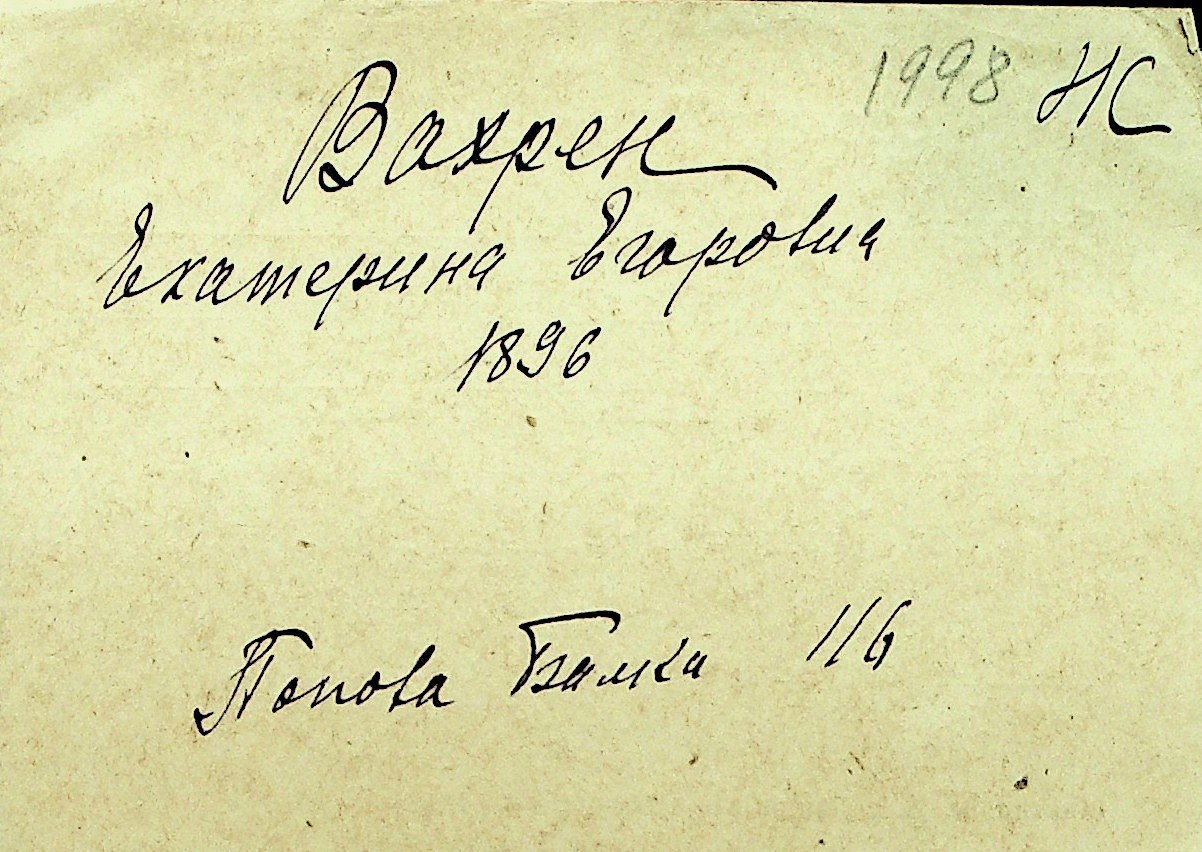 1998 НС
Вахрен
Екатерина Егоровна
1896
Попова Балка 116